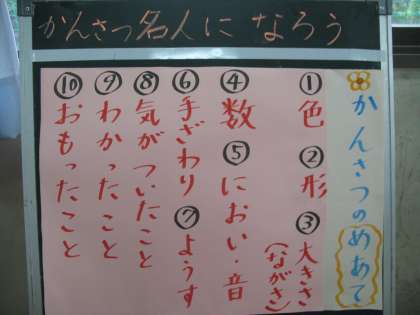 かんさつ名人になろう
かんさつのめあて
①色 ②形 ③大きさ
(ながさ)
④数 ⑤におい・音
⑥手ざわり ⑦ようす
⑧気がついたこと
⑨わかったこと
⑩おもったこと